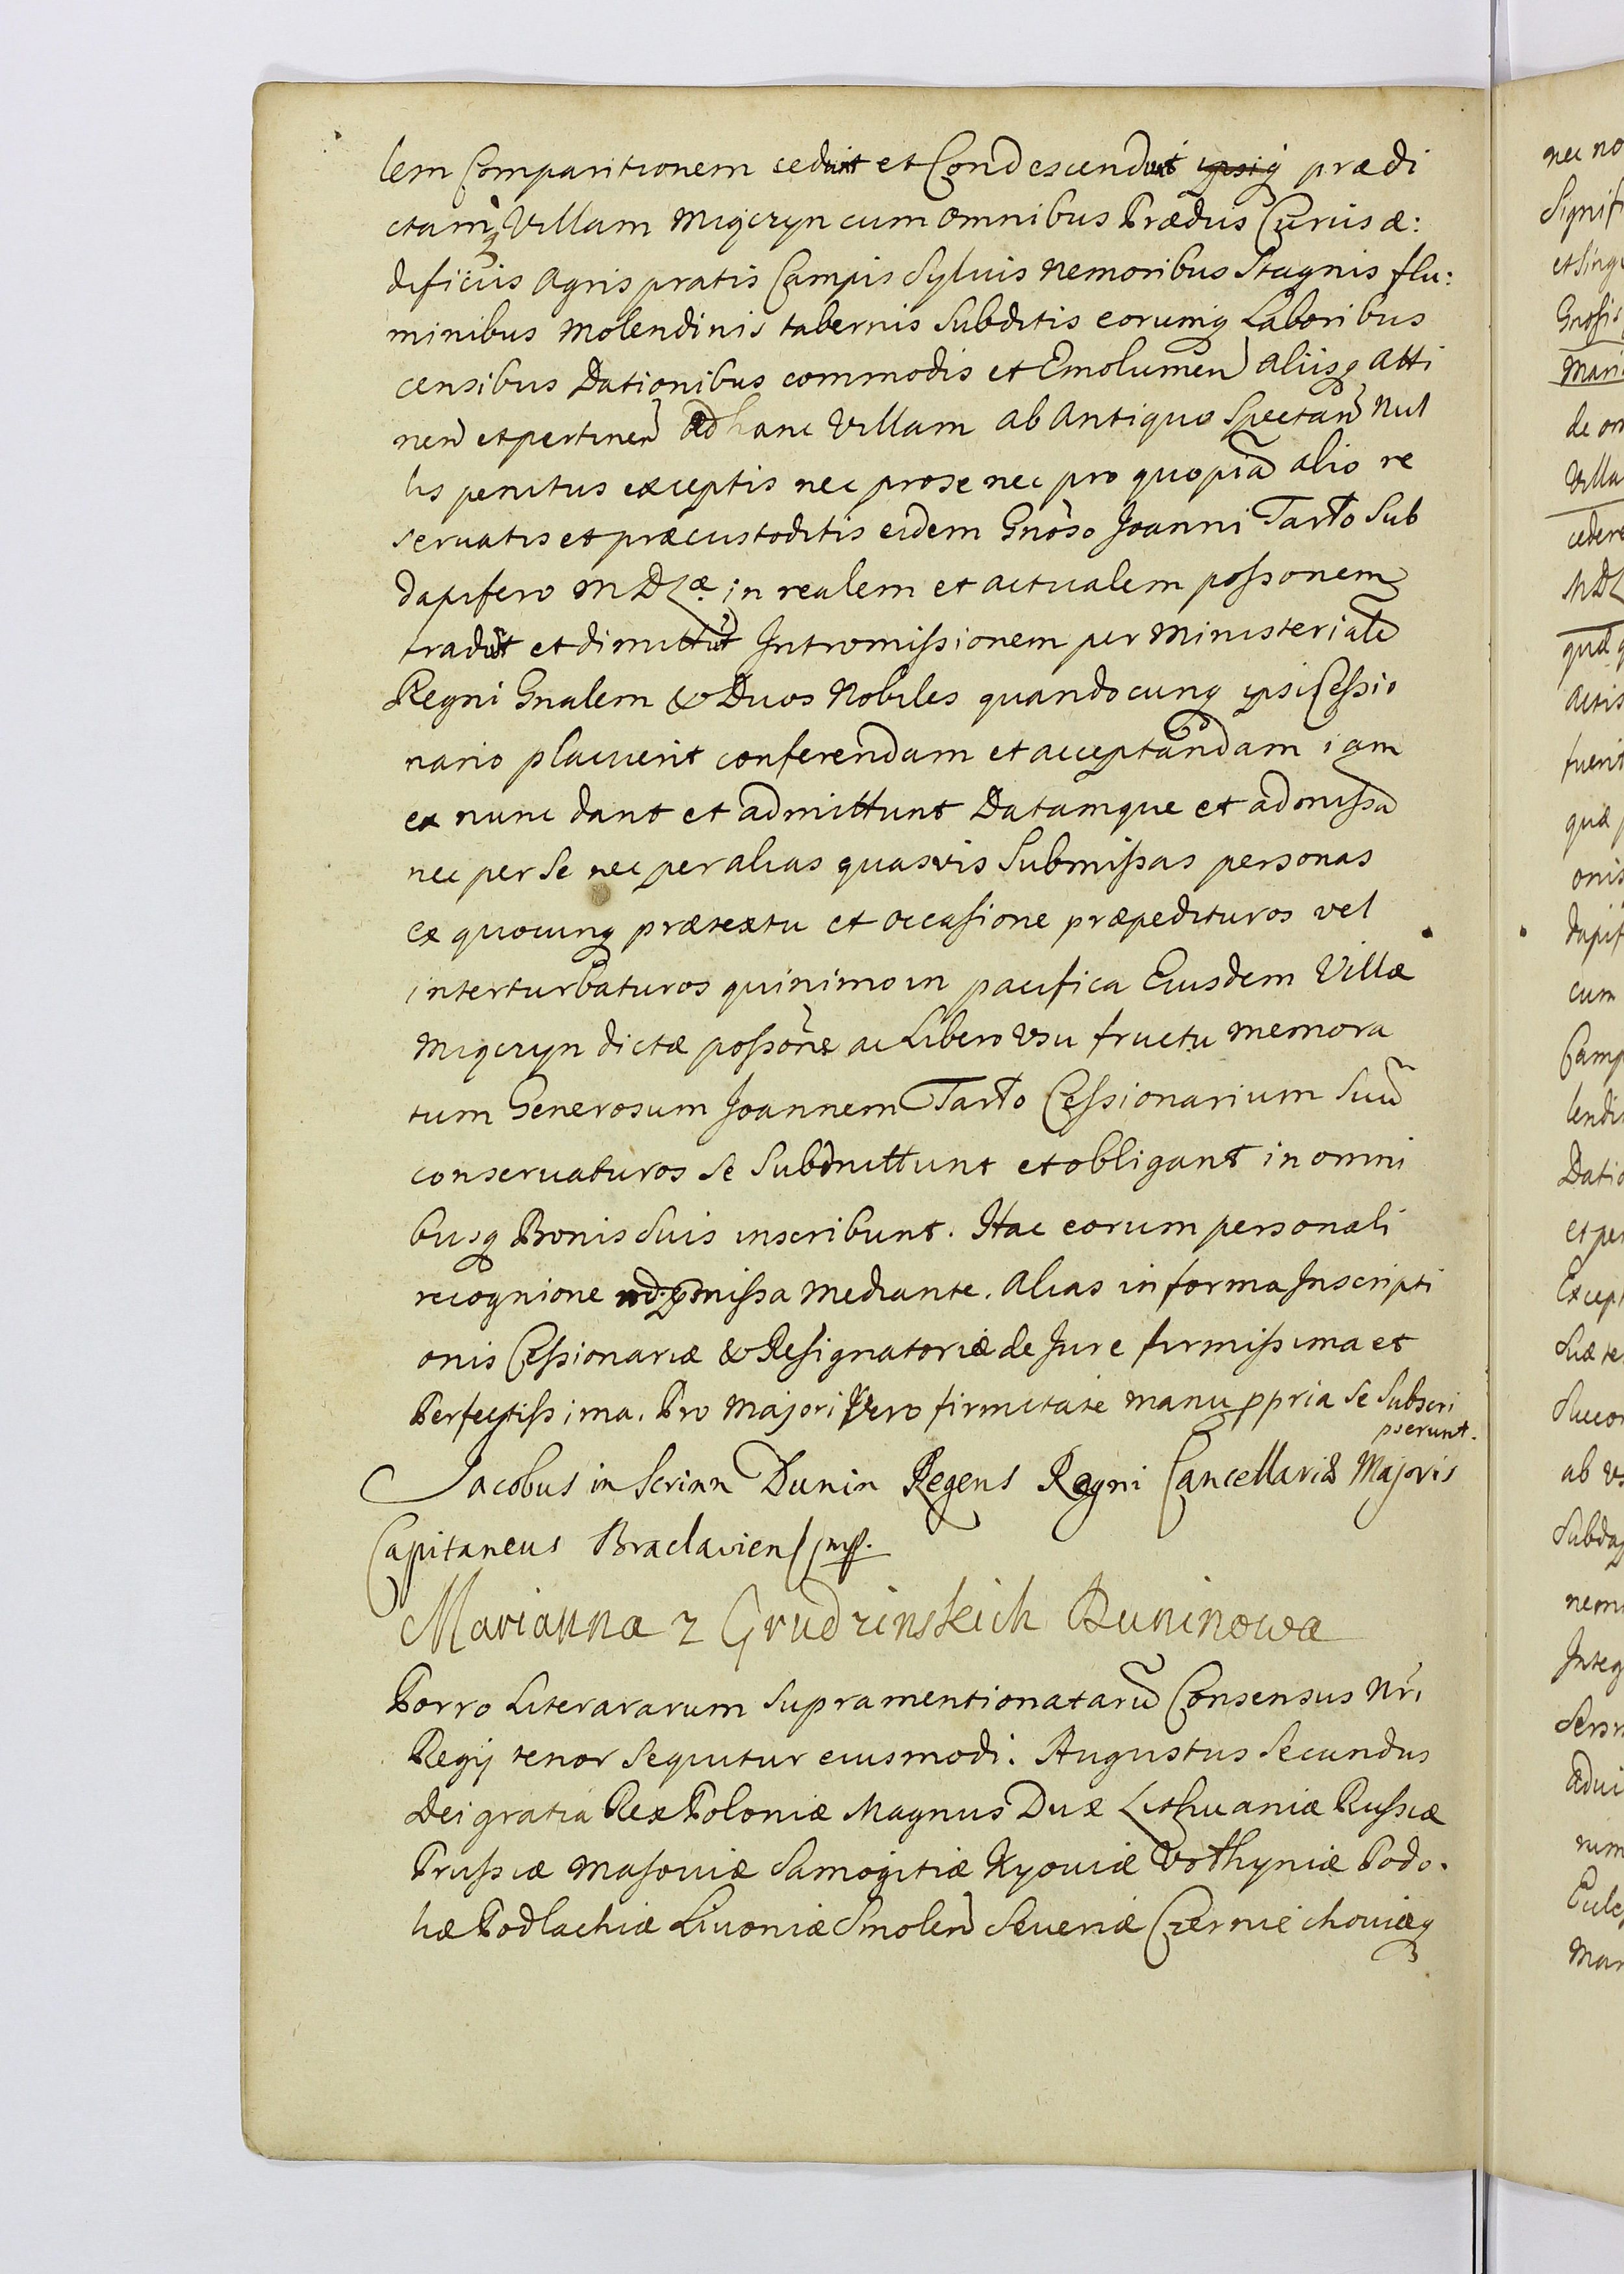 lem Comparitionem cedunt et Condescendunt ipsiq₃ prædi
ctamq₃ Villam Migczyn cum omnibus Prædiis Curiis æ:
dificiis Agris pratis Campis Syluis Nemoribus Stagnis flu:
minibus Molendinis tabernis Subditis eorumq₃ Laboribus
censibus Dationibus commodis et Emolumen aliisq₃ atti
nen et pertinen ad hanc Villam ab Antiquo Spectan Nul
lis penitus exceptis nec pro se nec pro quopiã alio re
seruatis et præcustoditis eidem Gnoso Joanni Tarło Sub
dapifero M D Læ in realem et actualem possonem
tradũt et dimittũt Intromissionem per Ministerialẽ
Regni Gnalem & Duos Nobiles quandocunq₃ ipsi Cessio
nario placuerit conferendam et acceptandam iam
ex nunc dant et admittunt Datamque et admissã
nec per Se nec per alias quasvis Submissas personas
ex quocunq₃ prætextu et occasione præpedituros vel
interturbaturos quinimo in pacifica Eiusdem Villæ
Migczyn dictæ possone ac Libero Vsu fructu memora
tum Generosum Joannem Tarło Cessionarium Suũ
conseruaturos se Submittunt et obligant in omni
busq₃ Bonis Suis inscribunt. Hac eorum personali
recognione ad præmissa Mediante. Alias in forma Inscripti
onis Cessionariæ & Resignatoriæ de Jure firmissima et
Perfectissima. Pro Majori Vero firmitate manu ppria Se Subscri
pserunt.
Jacobus in Scrinn Dunin Regens Regni Cancellariæ Majoris
Capitaneus Braclavien mp.
Marianna z Grudzinskich Duninowa
Porro Literararum Supramentionatarũ Consensus Nri
Regij tenor Sequitur eiusmodi. Augustus Secundus
Dei gratia Rex Poloniæ Magnus Dux Lithuaniæ Russiæ
Prussiæ Masouiæ Samogitiæ Kyouiæ Volhyniæ Podo.
liæ Podlachiæ Liuoniæ Smolen Seueriæ Czerniechouiæq₃
nec no
Signif
et Sing
Mari
de om
Villa
cedere
M D L
actis
fuerit
quæ
onis
dapif
cum
Camp
lendi
Datio
et per
Excep
Succo
Subda
nem
Integ
Mar